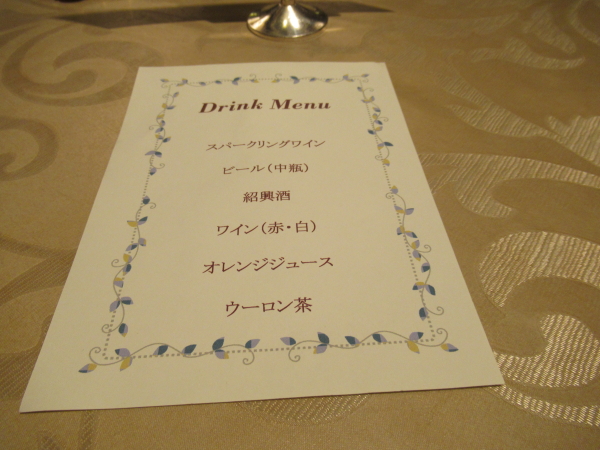 Drink Menu
スパークリングワイン
ビール(中瓶)
紹興酒
ワイン(赤・白)
オレンジジュース
ウーロン茶